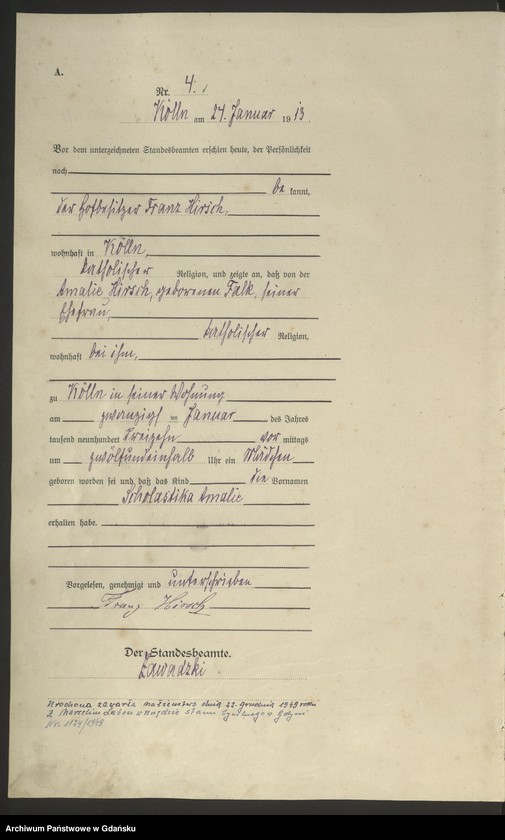 A.
Nr. 4.
Kölln am 24. Januar 1913.
Vor dem unterzeichneten Standesbeamten erschien heute, der Persönlichkeit
nach
be kannt,
der Hofbesitzer Franz Hirsch,
wohnhaft in Kölln,
katholischer Religion, und zeigte an, daß von der
Amalie Hirsch, geborenen Falk, seiner
Ehefrau,
katholischer Religion,
wohnhaft bei ihm,
zu Kölln in seiner Wohnung
am zwanzigst en Januar des Jahres
tausend neunhundert dreizehn vor mittags
um zwölfundeinhalb Uhr ein Mädchen
geboren worden sei und daß das Kind die Vornamen
Scholastika Amalie
erhalten habe.
Vorgelesen, genehmigt und unterschrieben
Franz Hirsch
Der Standesbeamte.
Zawadzki
Wrochona zawarła małżeństwo dnia 22. grudnia 1949 roku
z Marcelim w Urzędzie Stanu Cywilnego w Gdyni
Nr. 1124/1949
Archiwum Państwowe w Gdańsku